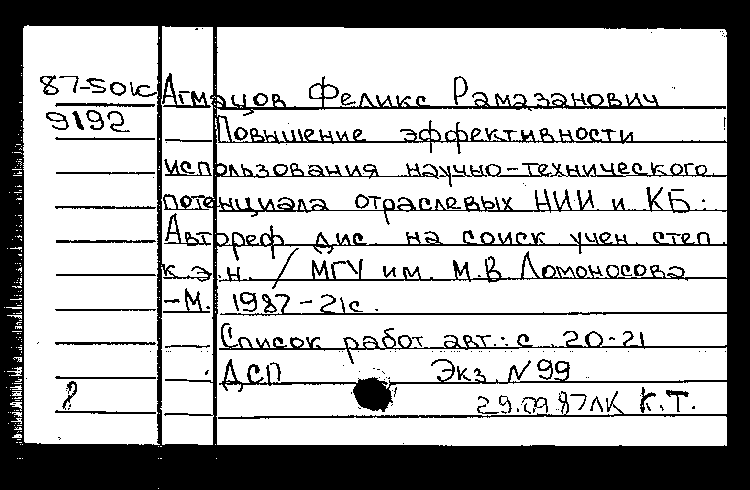 87-501с Агмацов Феликс Рамазанович
9192 Повышение эффективности
использования научно-технического
потенциала отраслевых НИИ и КБ:
Автореф дис на соиск учен. степ.
к.э.н. / МГУ им. М.В Ломоносова
-М. 1987-21с.
Список работ авт.: с 20-21
ДСП Экз. N 99
8 29.09.87ЛК К.Т.